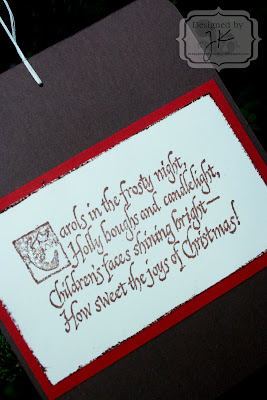 Designed by
JK
Carols in the frosty night,
Holly boughs and candlelight,
Children's faces shining bright—
How sweet the joys of Christmas!